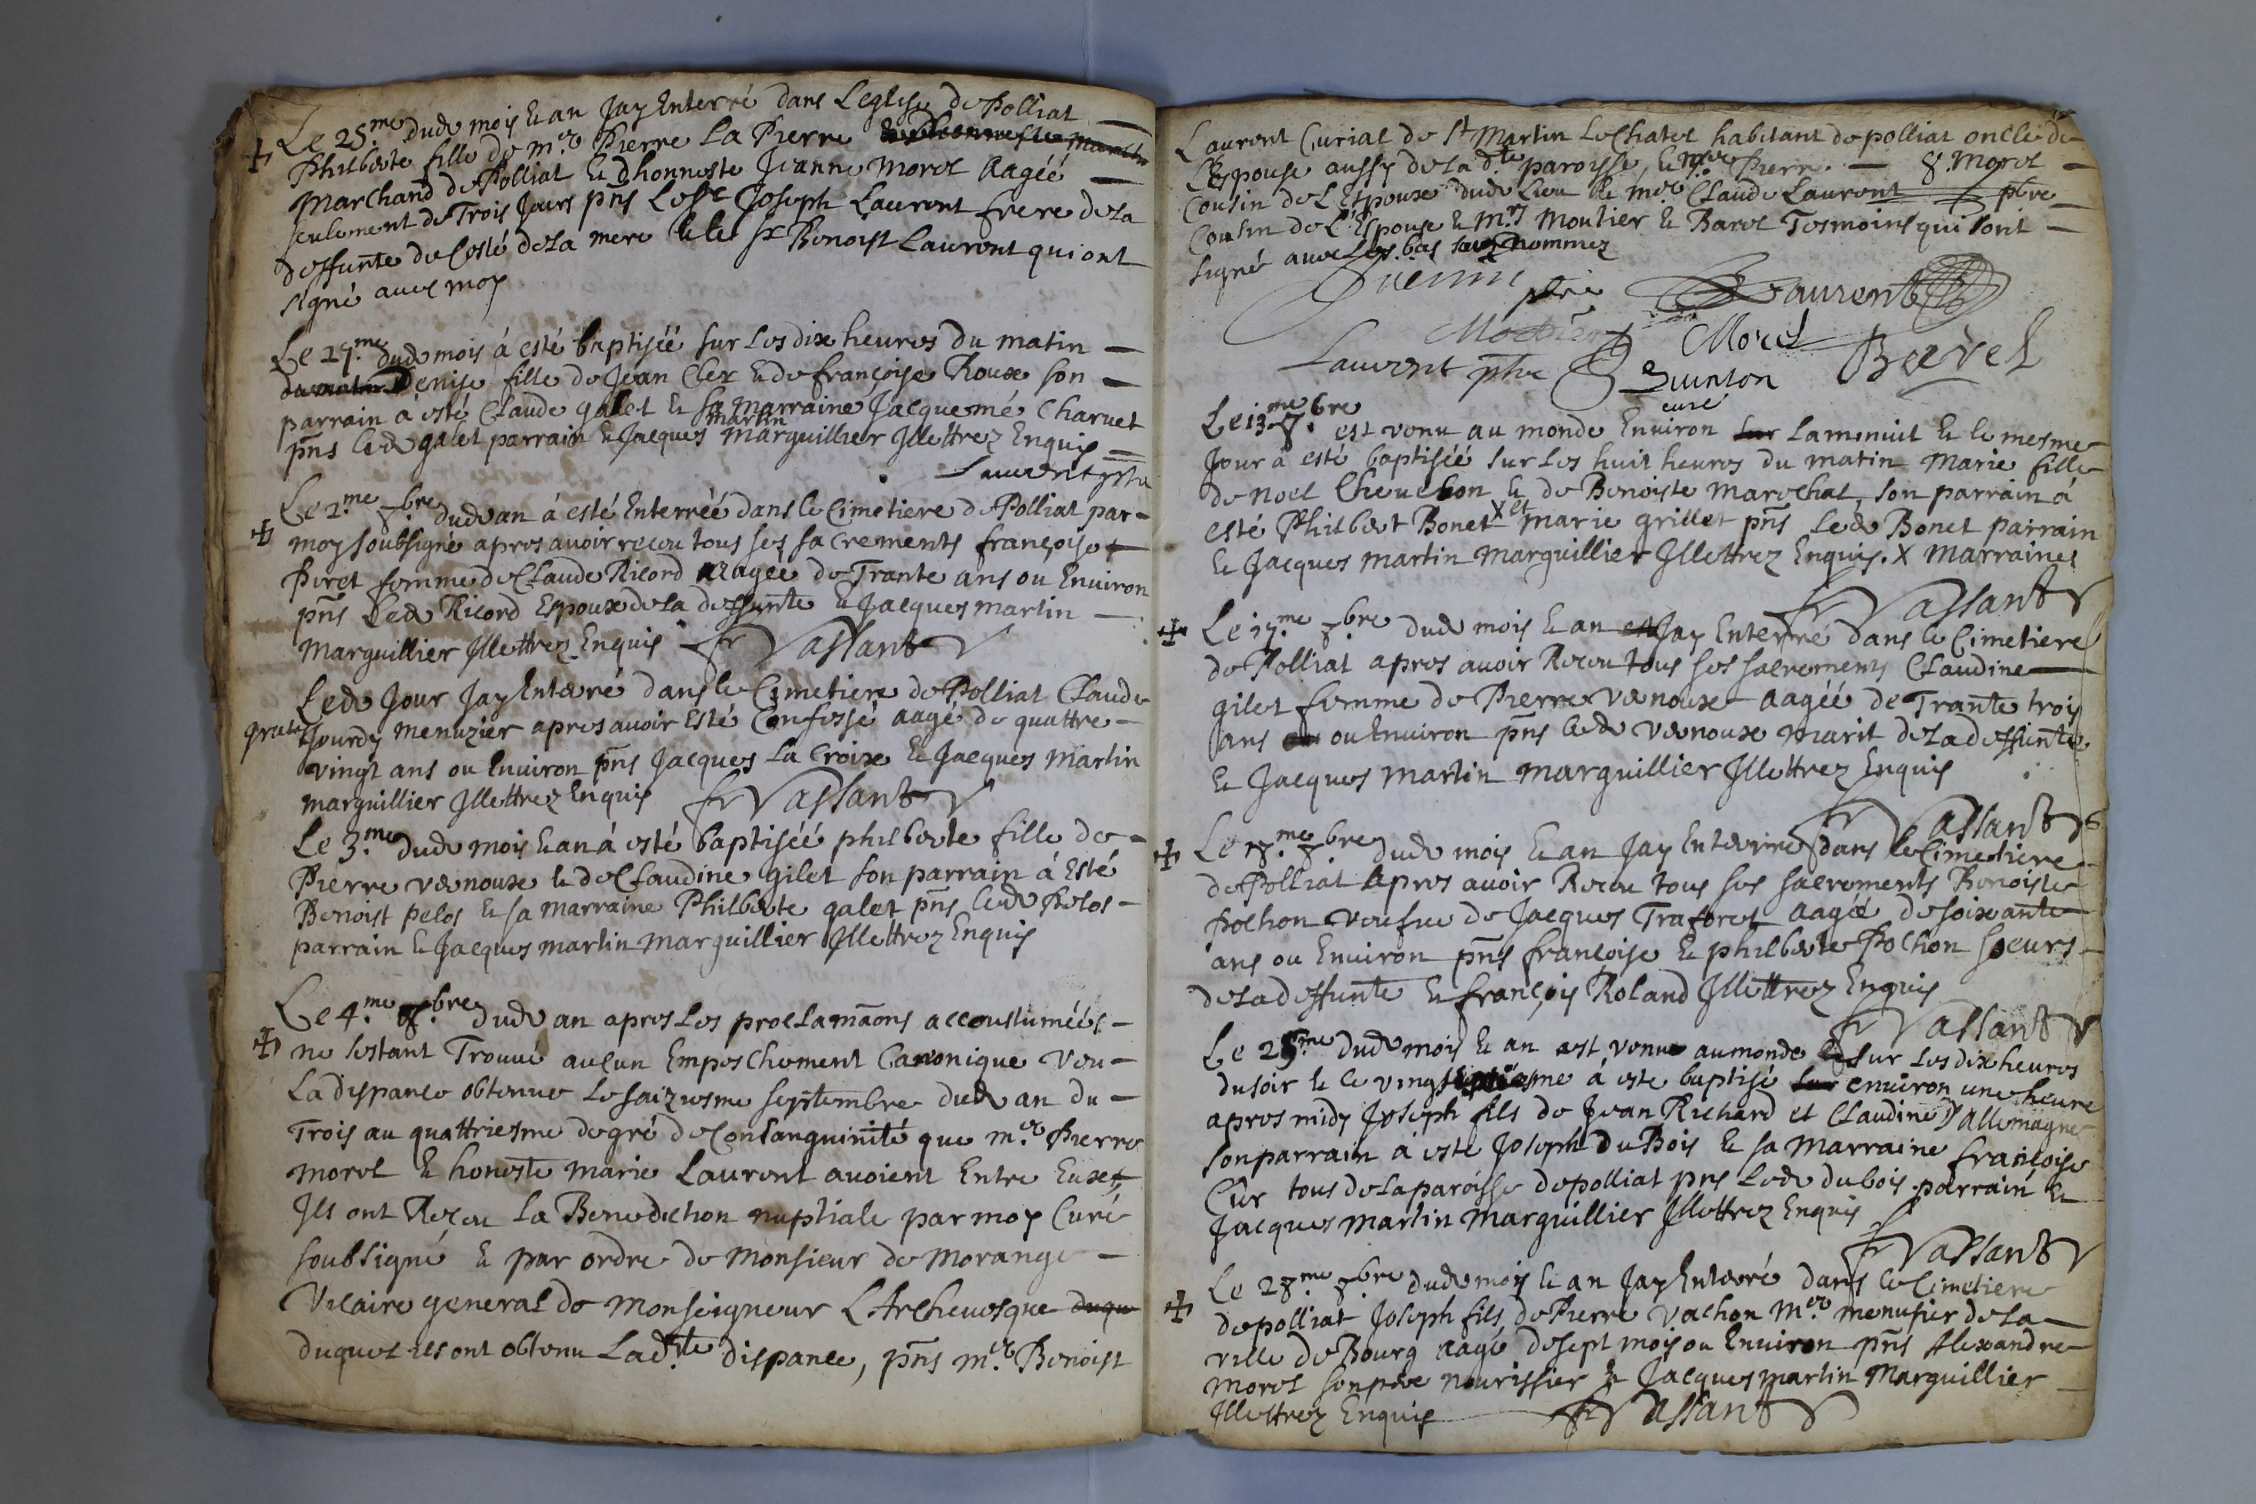 Le 25.me dud mois & an Jay Enterré dans L'eglise de Polliat
Philberte fille de m.e Pierre La Pierre
Marchand de Polliat & d'honneste Jeanne Morel aagéé
seulement de Trois Jours pñs Le Sr Joseph Laurent frere de la
deffunte de Costé de la mere & le Sr Benoist Laurent qui ont
signé avec moy
Le 27.me dud mois á esté baptiséé sur les dix heures du matin
du matin Denise fille de Jean Cler & de françoise Roux son
parrain á esté Claude galet & sa marraine Jacquemé Charvet
martin
pñs led galet parrain & Jacques marguillier Jllettrez Enquis
Laurent pstre
Le 2.me 8.bre dud an á esté Enterréé dans le Cimetiere de Polliat par
moy soubsigné apres avoir receu tous ses sacrements françoise
Peret femme de Claude Ricord aagee de Trante ans ou Environ
pñs Led Ricord Espoux de la deffunte & Jacques martin
Marguillier Jllettrez Enquis fr Vassant
Led Jour Jay Enterré dans le Cimetiere de Polliat Claude
gratis
Jourdy menuzier apres avoir Esté Confessé aagé de quattre
vingt ans ou Environ pñs Jacques La Croix & Jacques Martin
marguillier Jllettrez Enquis fr Vassant
Le 3.me dud mois & an á esté baptiséé philberte fille de
Pierre venoux & de Claudine gilet son parrain á Esté
Benoist pelos & sa marraine Philberte galet pñs led Pelos
parrain & Jacques martin marguillier Jllettrez Enquis
Le 4.me 8.bre dud an apres Les proclamãons accoustuméés
ne sestant Trouvé aucun Empeschement Canonique veu
La dispance obtenue Le saiziesme septembre dud an du
Trois au quattriesme degré de Consanguinité que m.e Pierre
Morel & honeste Marie Laurent avoient Entre Eux &
Jls ont Receu La Benediction nuptiale par moy Curé
soubsigné & par ordre de Monsieur de Morange
Vicaire general de Monseigneur L'Archevesque duqu
duquel ils ont obtenu Lad.te dispance, pñs m.e Benoist
Laurent Curial de St Martin Le Chatel habitant de polliat oncle de
L'Espouse aussy de la d.te paroisse, & m.e Pierre 8. Morel
Cousin de L'Espoux dud Lieu & m.e Claude Laurent pbre
Cousin de L'Espouse & M.rs Moutier & Barel Tesmoins qui sont
signé avec Les bas nommez
ptre Laurent
Morel
Laurent ptre Quinson Barel
curé
Le 13.me 8.bre est venu au monde Environ sur La minuit & le mesme
Jour á esté baptiséé sur les huit heures du matin Marie fille
de noel Chevelon & de Benoiste Marechal, son parrain á
esté Philbert Bonet X et marie grillet pñs Led Bonet parrain
& Jacques martin Marguillier Jllettrez Enquis. X Marraine
fr Vassant
Le 17.me 8.bre dud mois & an est Jay Enterré dans le Cimetiere
de Polliat apres avoir Receu tous ses sacrements Claudine
gilet femme de Pierre venoux aagéé de Trante trois
ans ou ou Environ pñs led venoux marit de la deffunte
& Jacques Martin Marguillier Jllettrez Enquis
fr Vassant
Le 18.me 8.bre dud mois & an Jay Enterrée dans le Cimetiere
de Polliat Apres avoir Receu tous ses sacrements Benoiste
Pochon veufve de Jacques Traforet aagéé de soixante
ans ou Environ pñs françoise & philberte Pochon soeurs
de la deffunte & françois Roland Jllettrez Enquis
fr Vassant
Le 25.me dud mois & an est venu au monde sur Les dix heures
du soir & le vingt á esté baptisé sur environ une heure
apres midy Joseph fils de Jean Richard et Claudine D'allemagne
son parrain á esté Joseph Du Bois & sa Marraine françoise
Cler tous de La paroisse de polliat pns Led dubois parrain &
Jacques Martin Marguillier Jllettrez Enquis
fr Vassant
Le 28.me 8.bre dud mois & an Jay Enterré dans le Cimetiere
de polliat Joseph fils de Pierre Vachon M.e menusier de la
ville de Bourg aagé de sept mois ou Environ pñs Alexandre
Morel son pere nourissier & Jacques martin Marguillier
Jllettrez Enquis fr Vassant